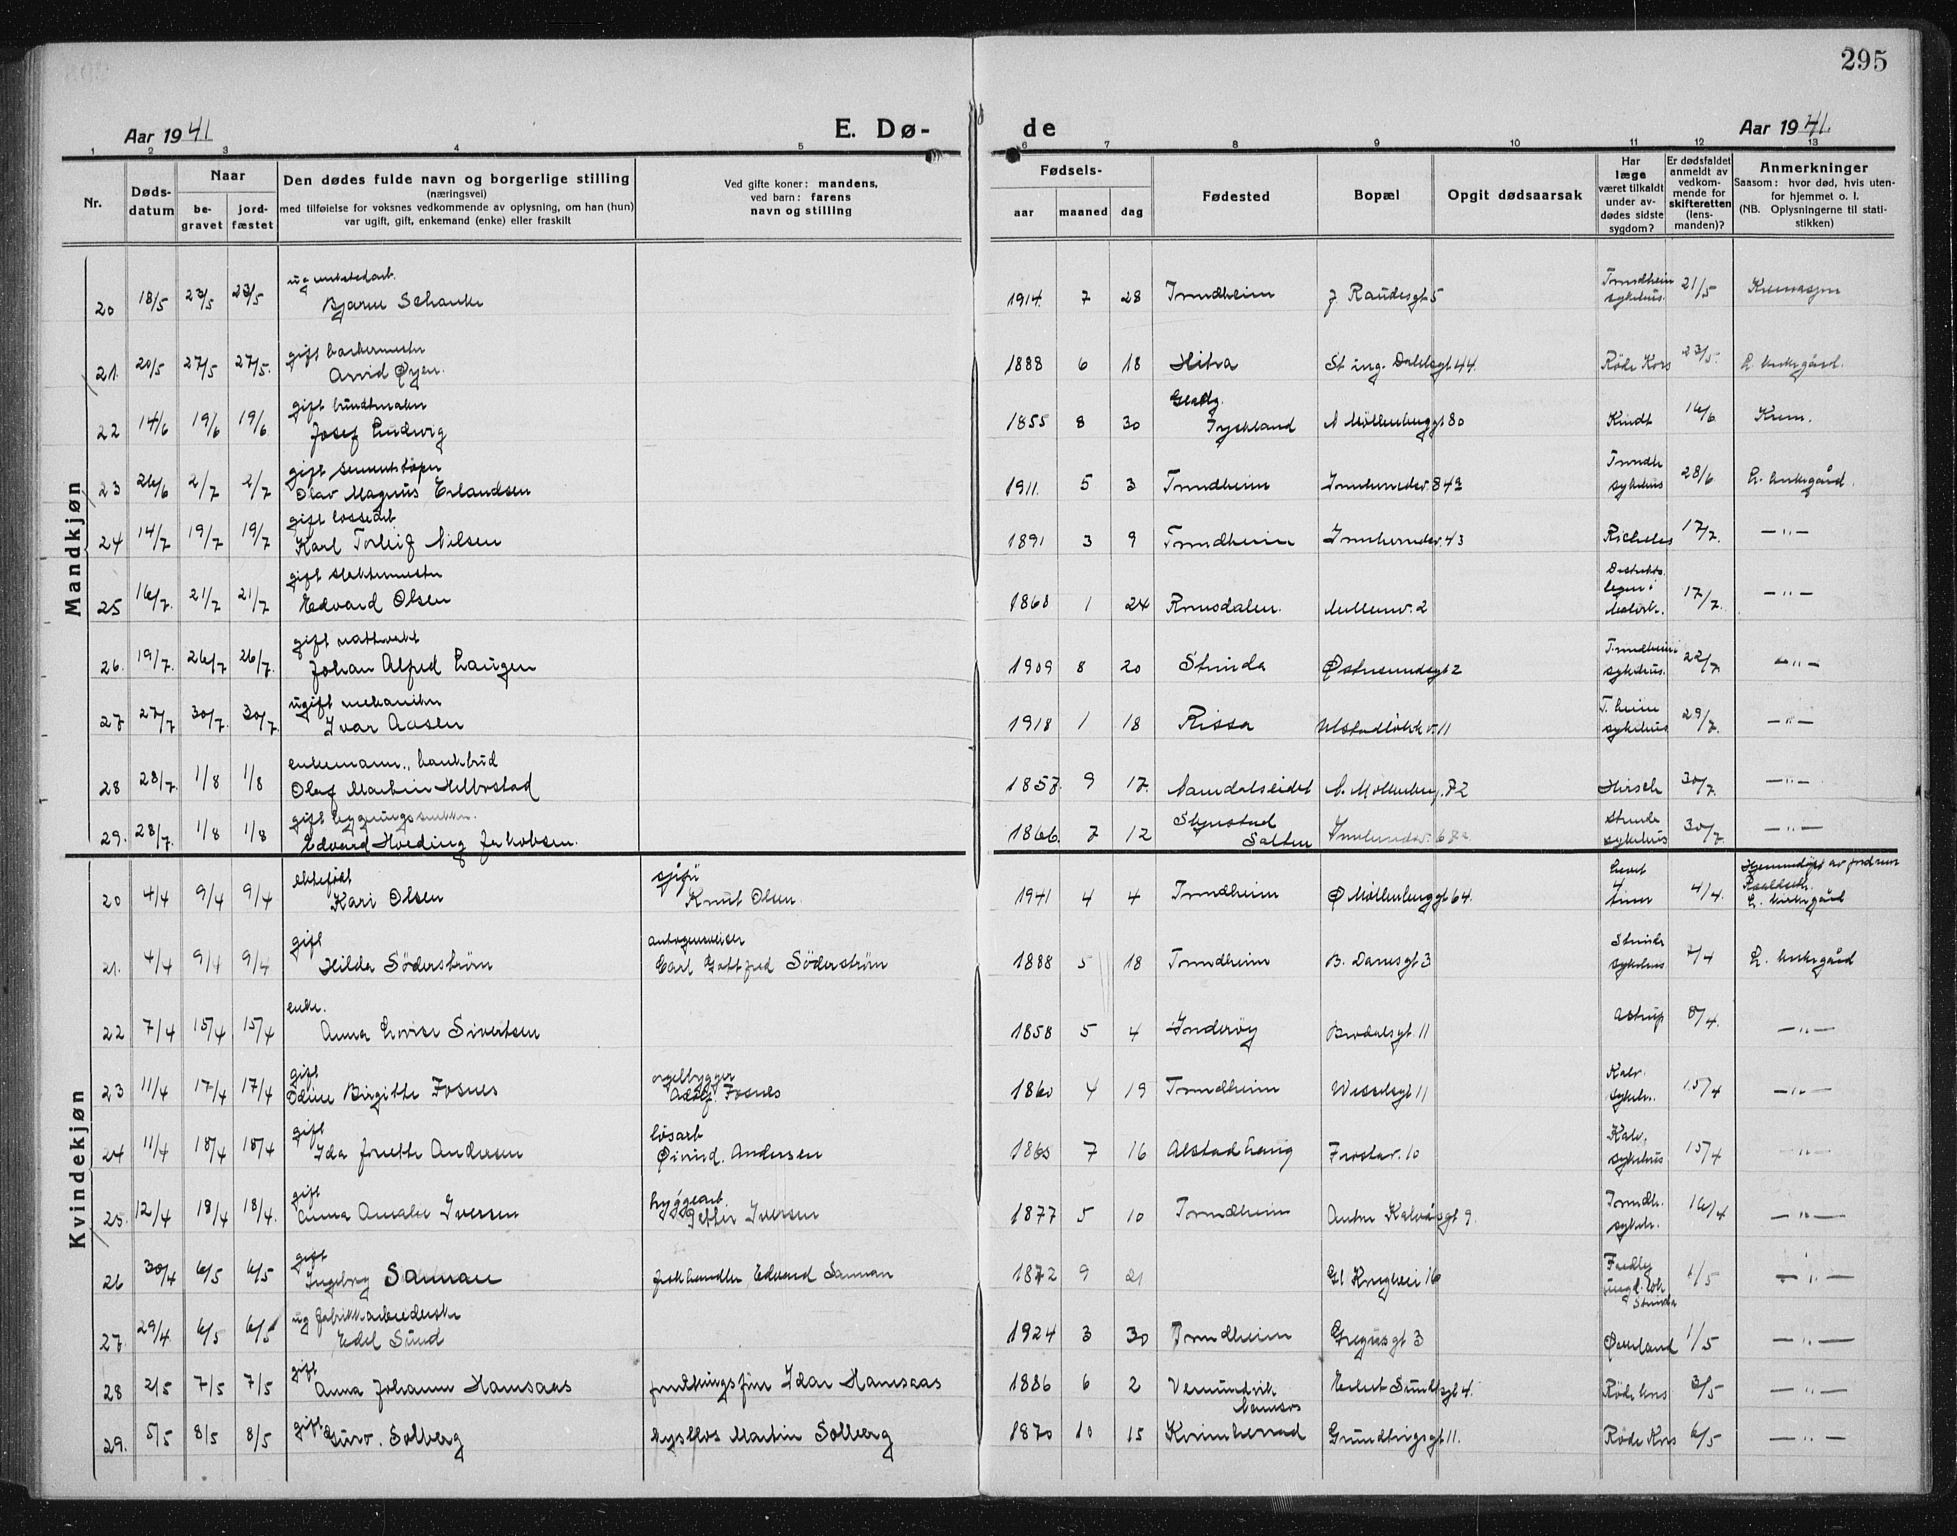 295
Aar 1941
E. Dø-
de
Aar 1941.
1 2 3 4 5 6 7 8 9 10 11 12 13
Nr.
Døds-
datum
Naar
be-
gravet
jord-
fæstet
Den dødes fulde navn og borgerlige stilling
(næringsvei)
med tilføielse for voksnes vedkommende av oplysning, om han (hun)
var ugift, gift, enkemand (enke) eller fraskilt
Ved gifte koner: mandens,
ved barn: farens
navn og stilling
Fødsels-
aar
maaned
dag
Fødested
Bopæl
Opgit dødsaarsak
Har
læge
været tilkaldt
under av-
dødes sidste
sygdom?
Er dødsfaldet
anmeldt av
vedkom-
mende for
skifteretten
(lens-
manden)?
Anmerkninger
Saasom: hvor død, hvis uten-
for hjemmet o. l.
(NB. Oplysningerne til stati-
stikken)
Mandkjøn
20 18/5 23/5 23/5 Bjarne Schanke 1914 7 28 Trondheim 5 Trondheim sykehus. 21/5 Kremasjon
21. 20/5 27/5 27/5. gift bakermester Arvid Øyen. 1888 6 18 Hitra St. ing. Dahlsgt 44. Røde Kors 23/5. L. kirkegård.
22 14/6 19/6 19/6 gift buntmaker Josef Ludwig 1855 8 30 Tyskland N. Møllenberggt 80 Kindt 16/6 Krem.
23 26/6 2/7 2/7 gift sementstøper Olav Magnus Erlandsen 1911. 5 3 Trondheim Innherredsv. Trondh sykehus 28/6 L. kirkegård.
24 14/7 19/7 19/7 gift lossearb Karl Torleif Nilsen 1891 3 9 Trondheim Innherredsv. 43 17/7. — " —
25 16/7. 21/7 21/7 gift slaktermester Edvard Olsen 1868 1 24 Romsdalen. 2 17/7. — " —
26. 19/7. 26/7 26/7. gift nattvakt Johan Alfred Haugen 1909 8 20 Strinda Østersundsgt 2 Trondheim sykehus. 22/7 — " —
27 27/7 30/7. 30/7. ugift mekaniker Ivar Aasen 1918 1 18 Rissa 11 T. heim sykehus 29/7. — " —
28 28/7. 1/8 1/8 enkemann, bankbud Olaf Martin Helbostad 1857. 9 17. Namdalseidet N. Møllenberg. 82 Hirsch 30/7. — " —
29. 28/7. 1/8 1/8 gift Edvard Hveding Jakobsen. 1866. 7 12 Salten Innherredsv. Strinda sykehus 30/7. — " —
Kvindekjøn
20 4/4 9/4 9/4 ektefødt Kari Olsen sjåfør Knut Olsen. 1941 4 4 Trondheim Ø Møllenberggt 64. Levet 4 timer 4/4. Hjemmedøpt av jordmor L. kirkegård
21. 4/4 9/4 9/4 gift Hilda Söderström autogensveiser Carl Gottfred Söderström 1888 5 18 Trondheim 3 Strinda sykehus /4 L. kirkegård
22 7/4 15/4 15/4 enke. Anna Lovise Sivertsen 1858 5 4 Inderøy Brodalsgt 11 Astrup 8/4. — " —
23 11/4 17/4 17/4 gift Odine Birgitte Fosnes orgelbygger Adolf Fosnes 1860 4 19 Trondheim Wesselsgt 11 Kalv. sykeh. 15/4 — " —
24 11/4 18/4 18/4 gift Ida Josette Andersen løsarb Øivind. Andersen 1865 7 16 Alstadhaug Frostav. 10 Kalv. sykehus 15/4 — " —
25. 12/4 18/4 18/4. gift Anna Amalie Iversen byggearb Petter Iversen 1877 5 10 Trondheim gt 9. Trondh. sykeh. 16/4 — " —
26 30/4 6/5 6/5 gift Ingeborg Sannan fiskhandler Edvard Sannan 1872 9 21 Gl Kongevei 16 Strinda 1/5 — " —
27. 29/4. 6/5 6/5 ug fabrikkarbeiderske Edel Sund 1924 3 30 Trondheim Gregusgt 3 Øverland 1/5 — " —
28 2/5 7/5 7/5 gift Anna Johanne Hansaas forretningsfører Idar Hansaas 1886 6 2 Vemundvik Namsos 4. Røde Kors 3/5 — " —
29. 5/5 8/5 8/5 gift Guro. Solberg Martin Solberg 1870 10 15 Kvinherred Grundtvigsgt 11. Røde Kors 6/5 — " —